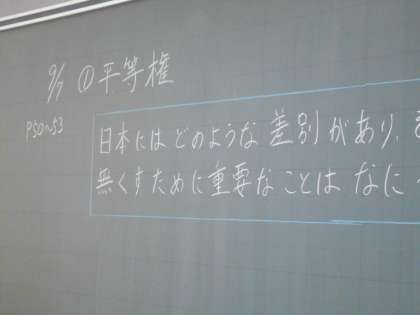 9/7 ①平等権
P50~53
日本にはどのような差別があり、
無くすために重要なことはなに